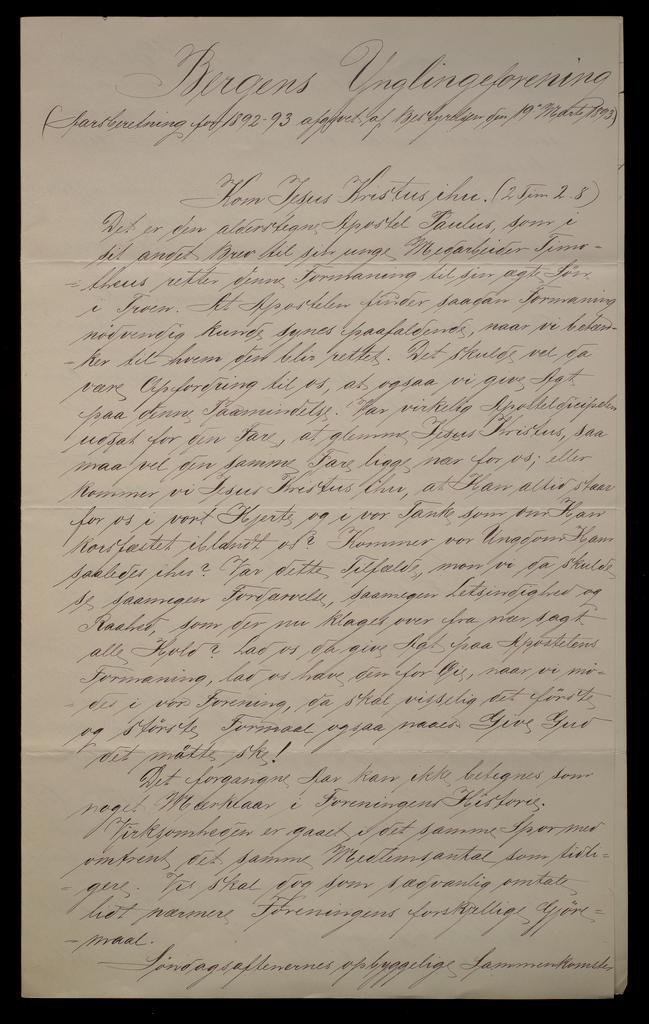 Bergens Ynglingeforening
(Aarsberetning for 1892-93 afgivet af Bestyrelsen den 19de Marts 1893)
Kom Jesus Kristus ihu. (2 Tim 2.8)
Det er den alderstegne Apostel Paulus, som i
sit andet Brev til sin unge Medarbeider Timo-
=theus retter denne Formaning til sin ægte Søn
i Troen. At Apostelen finder saadan Formaning
nødvendig kunde synes paafaldende, naar vi betæn-
=ker til hvem den blir rettet. Det skulde vel da
være Opfordring til os, at ogsaa vi give Agt
paa denne Paamindelse. Var virkelig Aposteldiscipelen
udsat for den Fare, at glemme Jesus Kristus, saa
maa vel den samme Fare ligge nær for os; eller
kommer vi Jesus Kristus ihu, at Han altid staar
for os i vort Hjerte og i vor Tanke som om Han
korsfæstet iblandt os? Kommer vor Ungdom Ham
saaledes ihu? Var dette Tilfælde, mon vi da skulde
se saamegen Fordærvelse, saamegen Letsindighed og
Raahed, som der nu klages over fra nær sagt
alle Hold? Lad os da give Agt paa Apostelens
Formaning, lad os have den for Øie, naar vi mö-
=des i vor Forening, da skal visselig det første
og største Formaal ogsaa naaes. Give Gud
det måtte ske!
Det forgangne Aar kan ikke betegnes som
noget Mærkeaar i Foreningens Historie.
Virksomheden er gaaet i det samme Spor med
omtrent det samme Medlemsantal som tidli-
=gere. Vi skal dog som sædvanlig omtale
lidt nærmere Foreningens forskjellige Gjøre=
=maal.
Søndagsaftenernes opbyggelige Sammenkomster